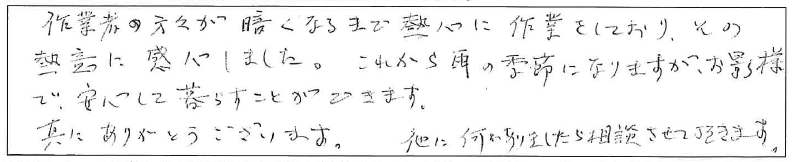 作業者の方々が暗くなるまで熱心に作業をしており、その
熱意に感心しました。これから雨の季節になりますが、お影様
で、安心して暮らすことができます。
真にありがとうございます。 他に何かありましたら相談させて頂きます。